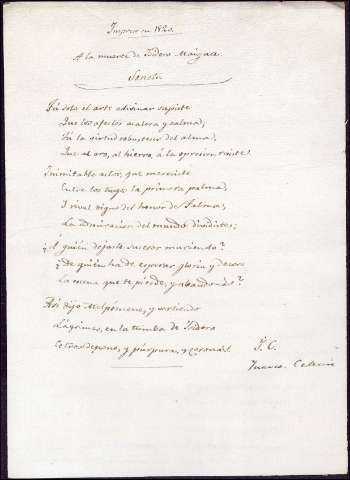 Impreso en 1820.
A la muerte de Isidoro Maiquez.
Soneto
Tú solo el arte adivinar supiste
Que los afectos acalora y calma;
Tú la virtud robustecer del alma,
Que al oro, al hierro, á la opresion resiste.
Inimitable actor, que mereciste
Entre los tuyos la primera palma,
Y rival digno del honor de Talma,
La admiracion del mundo dividiste;
¿A quién dejaste sucesor muriendo?
¿De quién ha de esperar gloria y decoro
La escena que te pierde, y abandonas?
Así dijo Melpómene, y vertiendo
Lágrimas, en la tumba de Isidoro
Cetro depone, y púrpura, y coronas.